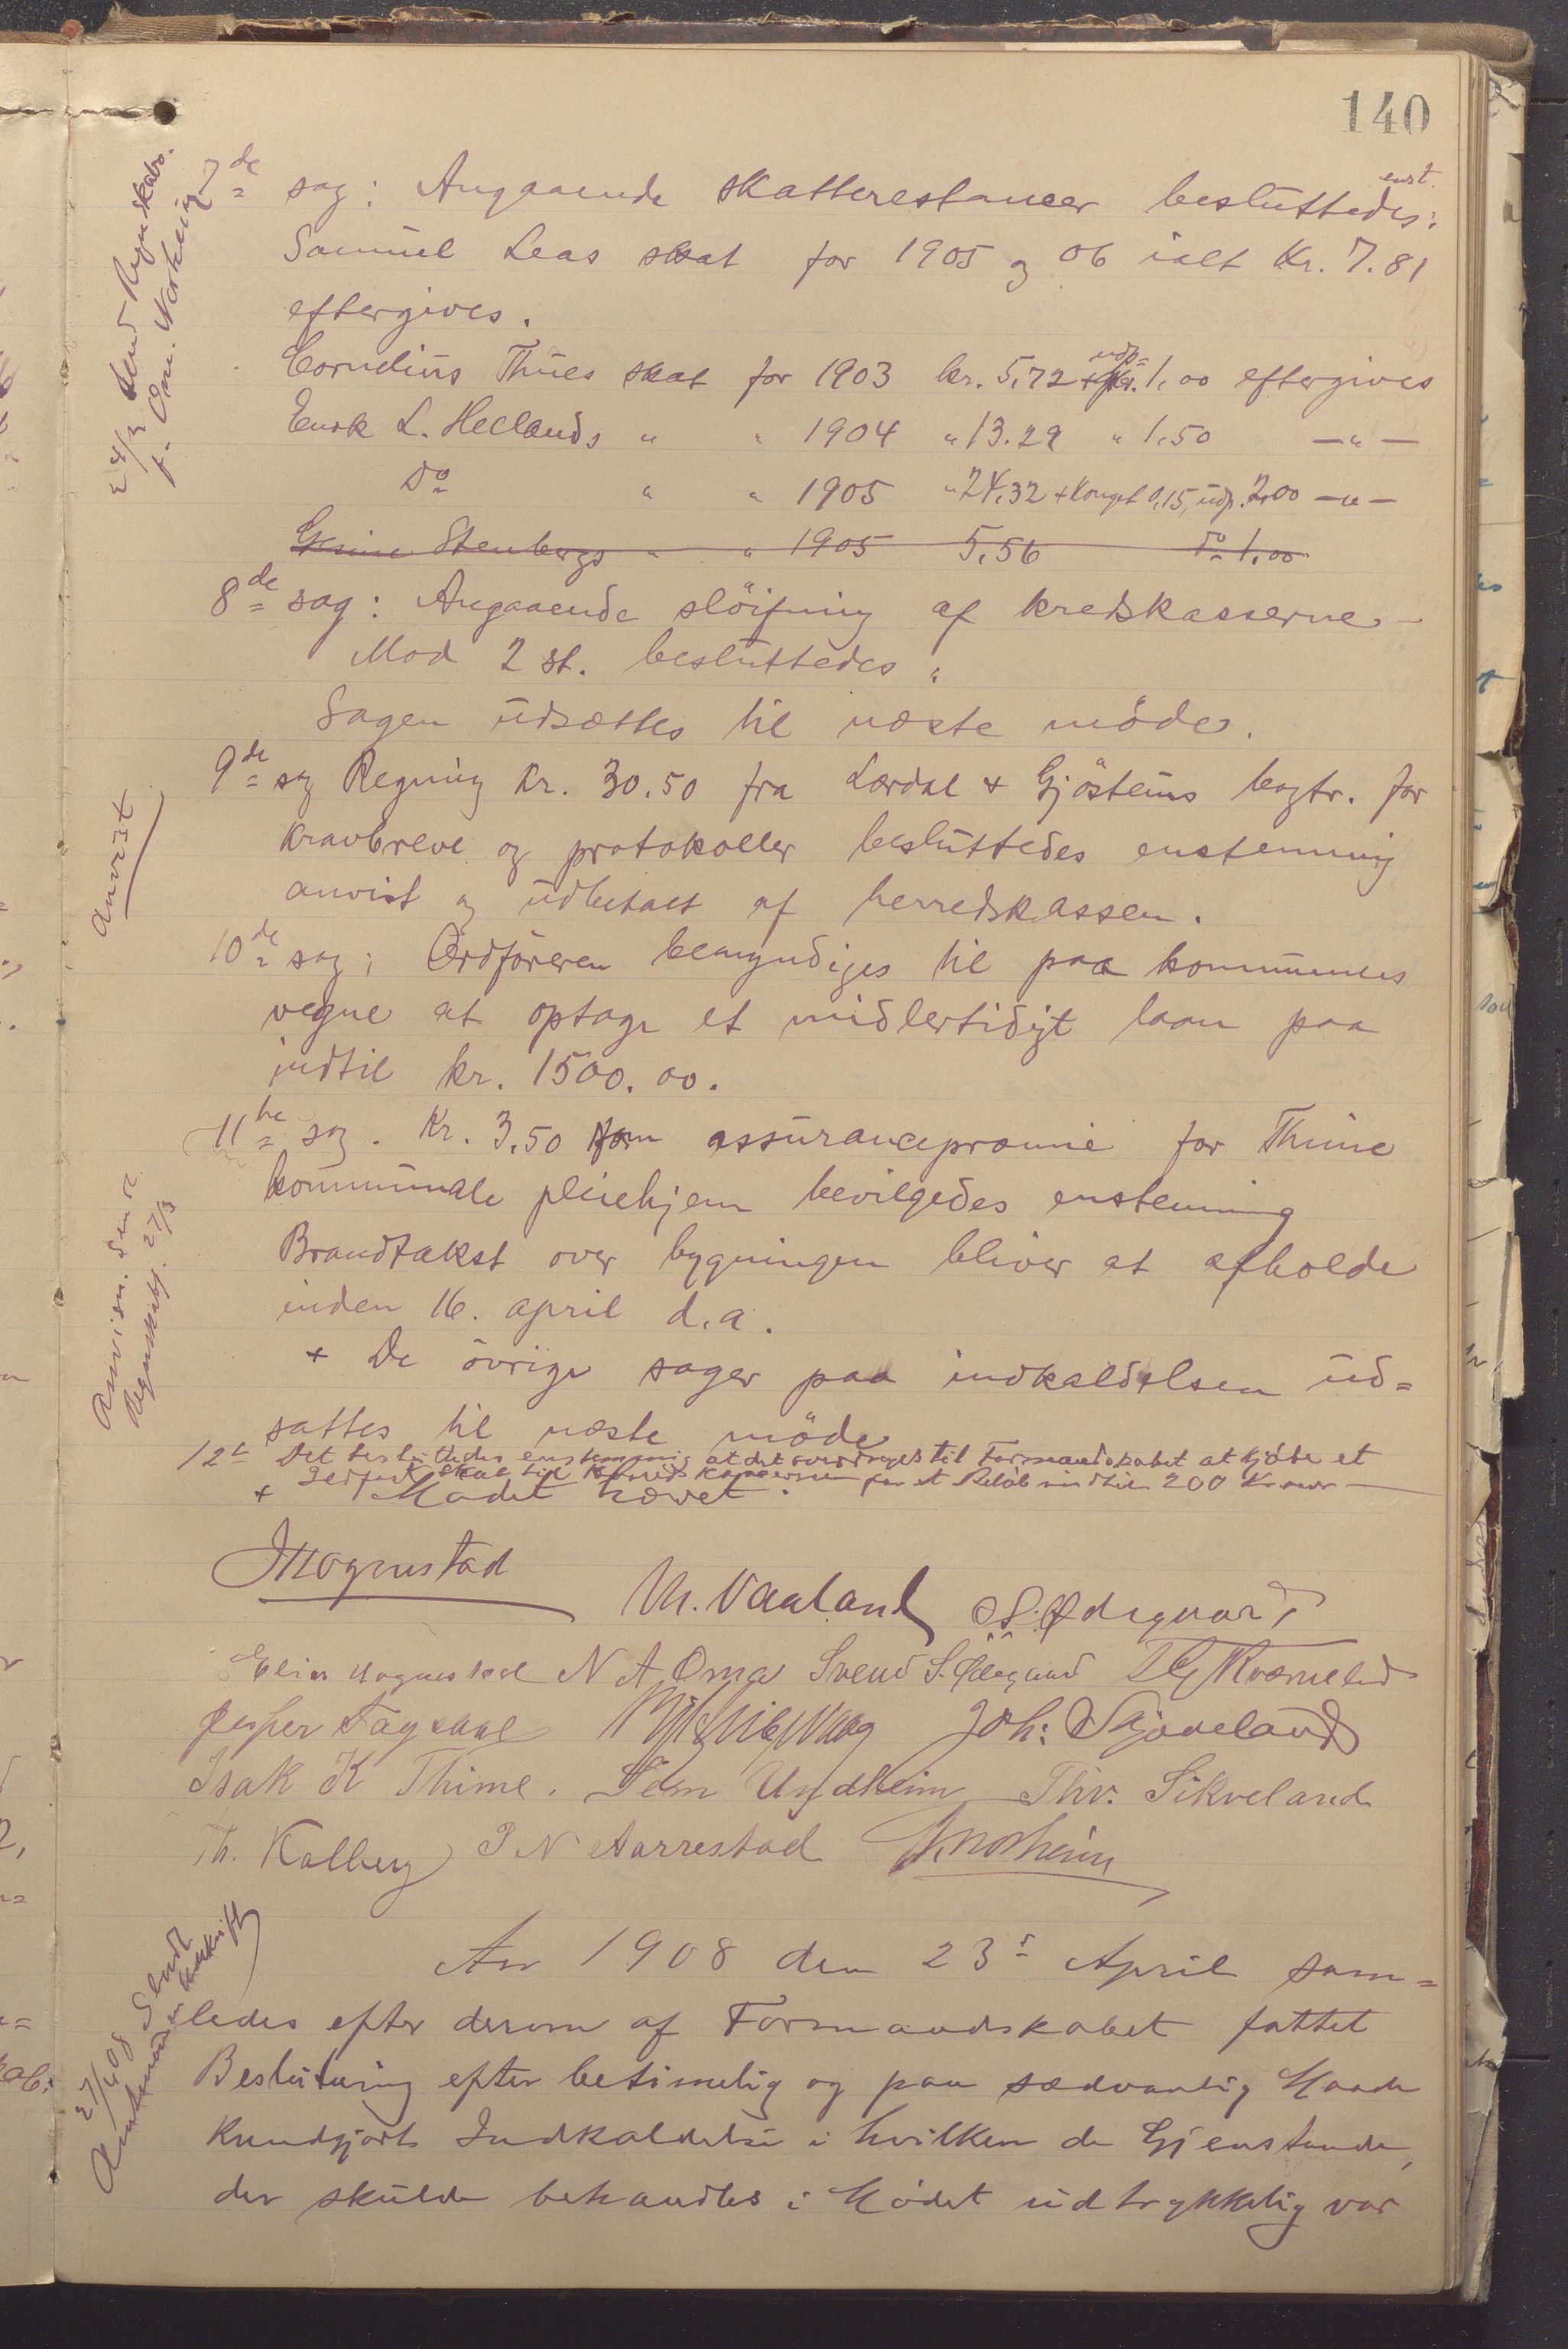 140
7de sag: Angaaende skatterestancer besluttedes enst.:
Samuel Leas skat for 1905 og 06 ialt Kr. 7.81
eftergives.
Cornelius Thues skat for 1903 kr. 5,72 + udp. 1,00 eftergives
Enok L. Hellands " " 1904 " 13.29 " 1,50 — " —
Do " " 1905 " 24,32 + Konget 0,15, udp. 2,00 — " —
Gesine Stenbergs " " 1905 5,56 do 1,00
24/3 Send Regnskabs.
f. Om. Norheim
8de sag: Angaaende slöifning af kredskasserne –
Mod 2 st. besluttedes "
Sagen udsættes til næste möde.
9de sag Regning Kr. 30.50 fra Lærdal & Gjösteins bogtr. for
kravbreve og protokoller besluttedes enstemmig
anvist og udbetalt af herredskassen.
Anvist
10de sag: Ordföreren bemyndiges til paa kommunens
vegne at optage et midlertidigt laan paa
indtil kr. 1500.00.
11te sag. Kr. 3,50 som assurancepræmie for Thime
kommunale pleiehjem bevilgedes enstemmig
Brandtakst over bygningen bliver at afholde
inden 16. april d.a.
Anvisn. Sendt
Regnskabsf. 27/3
+ De övrige sager paa indkaldelsen ud=
sattes til næste möde
12te Det besluttedes enstemmig at det overdrages til Formandskabet at kjöbe et
Ildfast Skab til Herredskassereren for et Belöb indtil 200 Kroner —
+ Mödet hævet.
J Mognestad
M. Vaaland S. Ødegaard
Elias Mognestad N A Oma Svend S. Ølegaard T G Kværneland
Jesper Fagsaul Joh: Skjæveland
Isak K Thime. Sem Undheim Thv. Sikveland
Th. Kalberg P N Aarrestad J. Norheim
Aar 1908 den 23de April sam=
ledes efter derom af Formandskabet fattet
Beslutning efter betimelig og paa sædvanlig Maade
kundgjort Indkaldelse i hvilken de Gjenstande,
der skulde behandles i Mödet udtrykkelig var
27/4 08 Sendt
Amtmand udskrift